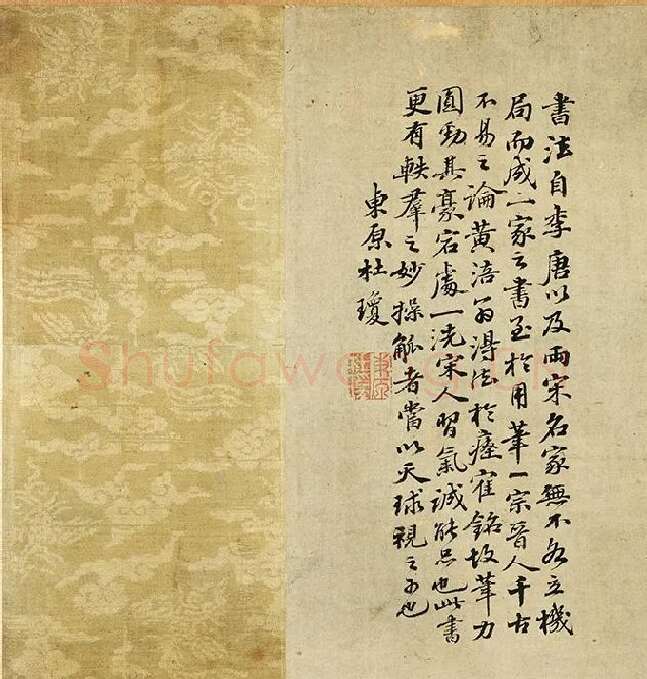 書法自李唐以及兩宋名家無不各立機
局而成一家之書至於用筆一宗晉人千古
不易之論黃涪翁得法於瘞隺銘故筆力
圓勁其豪宕處一洗宋人習氣誠能品也此書
更有軼羣之妙操觚者當以天球視之可也
東原杜瓊
Shufawang.cn